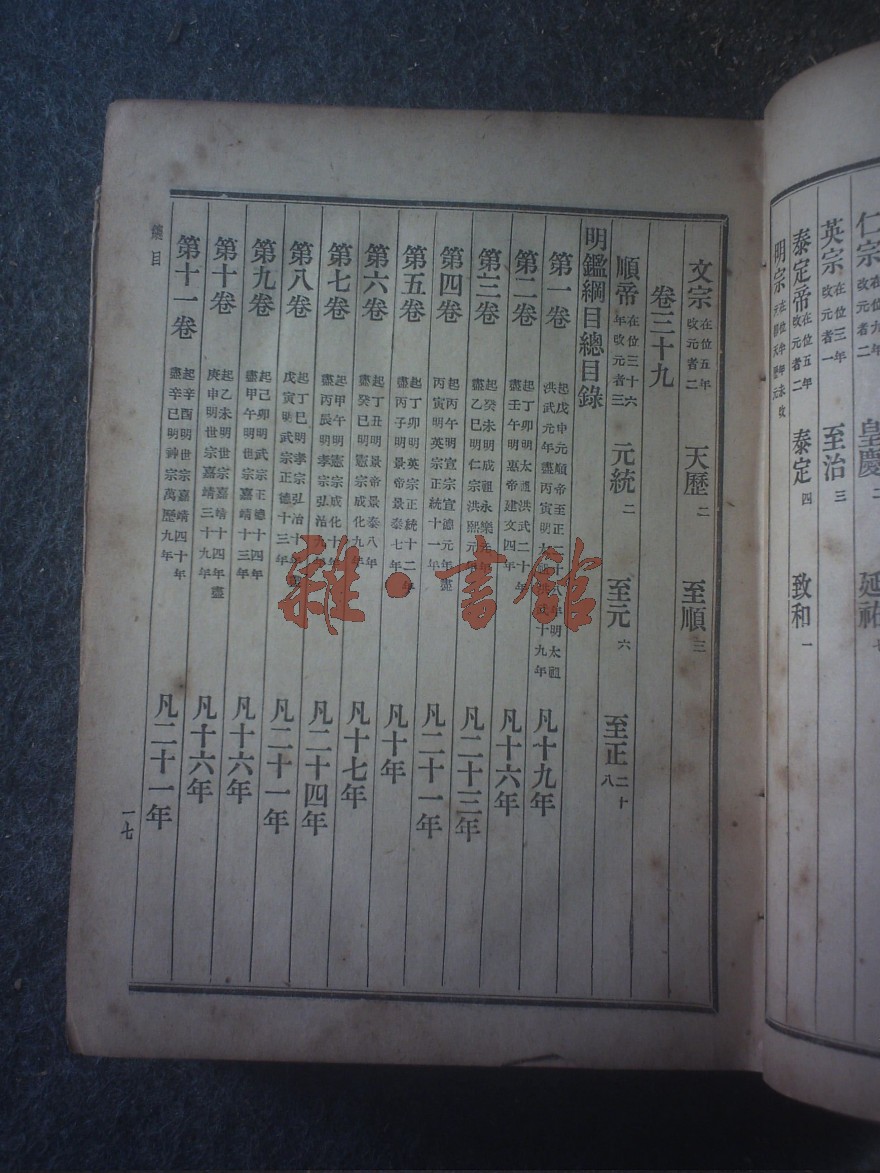 仁宗 在位九年 改元者二 皇慶 二 延祐 七
英宗 在位三年 改元者一 至治 三
泰定帝 在位五年 改元者二 泰定 四 致和 一
明宗
文宗 在位五年 改元者二 天歷 二 至順 三
卷三十九
順帝 在位三十六年改元者三 元統 二 至元 六 至正 二十八
明鑑綱目總目錄
第一卷 起戊申元順帝至正二十八年明太祖洪武元年盡丙寅明太祖洪武十九年 凡十九年
第二卷 起丁卯明太祖洪武二十年盡壬午明惠帝建文四年 凡十六年
第三卷 起癸未明成祖永樂元年盡乙巳明仁宗洪熙元年 凡二十三年
第四卷 起丙午明宣宗宣德元年盡丙寅明英宗正統十一年 凡二十一年
第五卷 起丁卯明英宗正統十二年盡丙子明景帝景泰七年 凡十年
第六卷 起丁丑明景帝景泰八年盡癸巳明憲宗成化九年 凡十七年
第七卷 起甲午明憲宗成化十年盡丙辰明孝宗弘治九年 凡二十四年
第八卷 起丁巳明孝宗弘治十年盡戊寅明武宗正德十三年 凡二十一年
第九卷 起己卯明武宗正德十四年盡甲午明世宗嘉靖十三年 凡十六年
第十卷 起乙未明世宗嘉靖十四年盡庚申明世宗嘉靖三十九年 凡十六年
第十一卷 起辛酉明世宗嘉靖四十年盡辛巳明神宗萬歷九年 凡二十一年
總目
一七
雜·書館